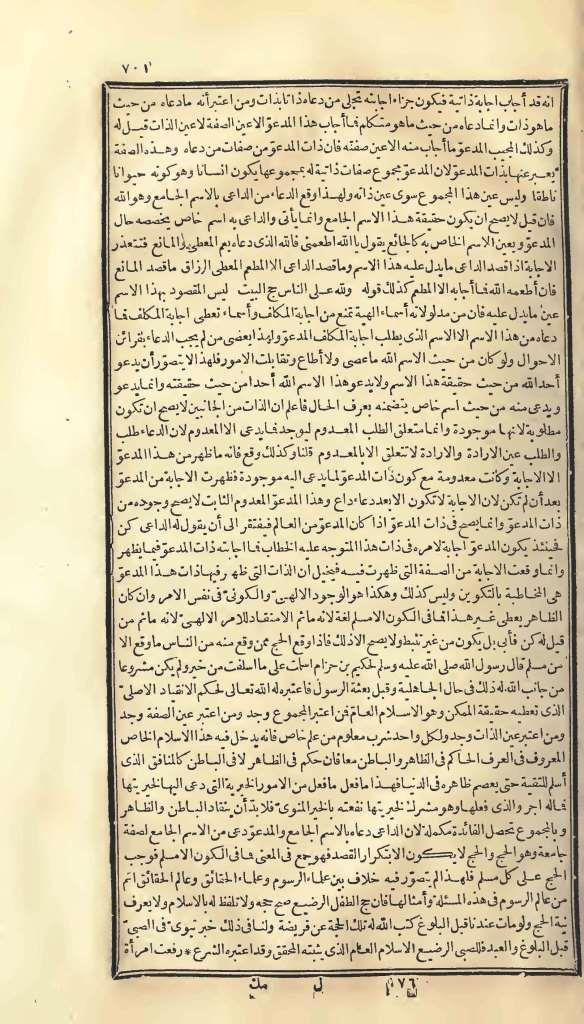 ٧٠١
انه قد أجاب اجابة ذاتية فيكون جزاء اجابته تجلى من دعاه ذاتا بذات ومن اعتبر أنه مادعاه من حيث
ماهو ذات وانما دعاه من حيث ماهو متكلم فما أجاب هذا المدعو الا عين الصفة لا عين الذات قيل له
وكذلك المجيب المدعو ما أجاب منه الا عين صفته فان ذات المدعو من صفات من دعاه وهذه الصفة
يعبر عنها بذات المدعو لان المدعو مجموع صفات ذاتية له بمجموعها يكون انسانا وهو كونه حيوانا
ناطقا وليس عين هذا المجموع سوى عين ذاته ولهذا وقع الدعاء من الداعى بالاسم الجامع وهو الله
فان قيل لا يصح ان يكون حقيقة هذا الاسم الجامع وانما يأتى والداعى به اسم خاص يخصصه حال
المدعو ويعين الاسم الخاص به كالجائع يقول يا الله اطعمنى فالله الذى دعاه يعم المعطى والمانع فتتعذر
الاجابة اذا قصد الداعى ما يدل عليه هذا الاسم وما قصد الداعى الا المطعم المعطى الرزاق ما قصد المانع
فان أطعمه الله فما أجابه الا المطعم كذلك قوله ولله على الناس حج البيت ليس المقصود بهذا الاسم
عين ما يدل عليه فان من مدلولاته أسماء الهية تمنع من اجابة المكلف وأسماء تعطى اجابة المكلف فما
دعاه من هذا الاسم الا الاسم الذى يطلب اجابة المكلف المدعو ولهذا بعصى من لم يجب الدعاء بقرائن
الاحوال ولو كان من حيث الاسم الله ما عصى ولا أطاع وتقابلت الامور فلهذا لا يتصور أن يدعو
أحد الله من حيث حقيقة هذا الاسم ولا يدعو هذا الاسم الله أحدا من حيث حقيقته وانما يدعو
ويدعى منه من حيث اسم خاص يتضمنه يعرف الحال فاعلم ان الذات من الجانبين لا يصح ان تكون
مطلوبة لانها موجودة وانما متعلق الطلب المعدوم ليوجد فما يدعى الا المعدوم لان الدعاء طلب
والطلب عين الارادة والارادة لا تتعلق الا بالمعدوم قلنا وكذلك وقع فانه ما ظهر من هذا المدعو
الا الاجابة وكانت معدومة مع كون ذات المدعو لما يدعى اليه موجودة فظهرت الاجابة من المدعو
بعد أن لم تكن لان الاجابة لا تكون الا بعد دعاء داع وهذا المدعو المعدوم الثابت لا يصح وجوده من
ذات المدعو وانما يصح فى ذات المدعو اذا كان المدعو من العالم فيفتقر الى أن يقول له الداعى كن
فحينئذ يكون المدعو اجابة لامره فى ذات هذا المتوجه عليه الخطاب فما اجابته ذات المدعو فيما يظهر
وانما وقعت الاجابة من الصفة التى ظهرت فيه فيخيل ان الذات التى ظهر فيها ذات هذا المدعو
هى المخاطبة بالتكوين وليس كذلك وهكذا هو الوجود الالهىّ والكونىّ فى نفس الامر وان كان
الظاهر يعطى غير هذا فما فى الكون الا مسلم لغة لانه ما ثم الا منقاد للامر الالهىّ لانه ما ثم من
قيل له كن فأبى بل يكون من غير تثبط ولا يصح الا ذلك فاذا وقع الحج ممن وقع منه من الناس ما وقع الا
من مسلم قال رسول الله صلى الله عليه وسلم لحكيم بن حزام اسلمت على ما اسلفت من خير ولم يكن مشروعا
من جانب الله له ذلك فى حال الجاهلية وقبل بعثة الرسول فاعتبره له الله تعالى لحكم الانقياد الاصلىّ
الذى تعطيه حقيقة الممكن وهو الاسلام العام فمن اعتبر المجموع وجد ومن اعتبر عين الصفة وجد
ومن اعتبر عين الذات وجد ولكل واحد شرب معلوم من علم خاص فانه يدخل فيه هذا الاسلام الخاص
المعروف فى العرف الحاكم فى الظاهر والباطن معا فان حكم فى الظاهر لا فى الباطن كالمنافق الذى
أسلم للتقية حتى يعصم ظاهره فى الدنيا فهذا ما فعل ما فعل من الامور الخيرية التى دعى اليها لخيريتها
فماله اجر والذى فعلها وهو مشرك لخيريتها نفعته بالخير المنوىّ فلابد أن ينقاد الباطن والظاهر
وبالمجموع تحصل الفائدة مكملة لان الداعى دعاه بالاسم الجامع والمدعو دعى من الاسم الجامع لصفة
جامعة وهو الحج والحج لا يكون الا بتكرار القصد فهو جمع فى المعنى فما فى الكون الا مسلم فوجب
الحج على كل مسلم فلهذا لم يتصور فيه خلاف بين علماء الرسوم وعلماء الحقائق وعالم الحقائق اتم
من عالم الرسوم فى هذه المسئلة وأمثالها فان حج الطفل الرضيع صح حجه ولا تلفظ له بالاسلام ولا يعرف
نية الحج ولو مات عندنا قبل البلوغ كتب الله له تلك الحجة عن فريضة ولنا فى ذلك خبر نبوىّ فى الصبىّ
قبل البلوغ والعبد فللصبى الرضيع الاسلام العام الذى يثبته المحقق وقد اعتبره الشرع * رفعت امرأة
١٧٦ ل مك